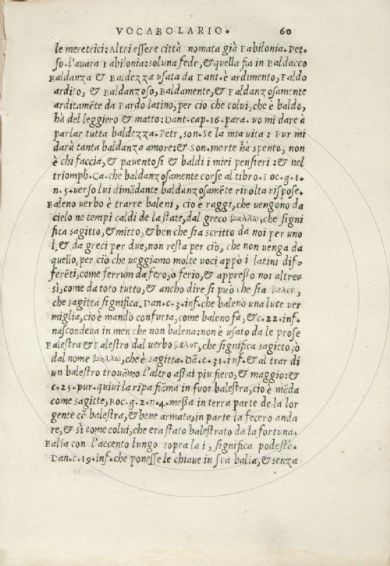 VOCABOLARIO. 60
le meretrici: Altri essere città nomata già Babilonia. Pet.
so. L'auara Babilonia: so. luna fede, & quella fia in Baldacco
Baldanza & Baldezza usata da Dant. è ardimento, Baldo
ardito, & Baldanzoso, Baldamente, & Baldanzosamente
arditamēte da Bardo latino, per cio che colui, che è baldo,
hà del leggiero & matto: Dant. cap. 16. para. uo mi dare à
parlar tutta baldezza. Petr, son. Se la mia uita: Pur mi
darà tanta baldanza amore: & Son. morte hà spento, non
è chi faccia, & pauentosi & baldi i miei pensieri: & nel
triomph. Ca. che baldanzosamente corse al tibro. Boc. g. 1.
n. 5. uerso lui dimādante baldanzosamēte riuolta rispose.
Baleno uerbo è trarre baleni, cio è raggi, che uengono da
cielo ne tempi caldi de la state, dal greco βάλλω, che signi
fica sagitto, & mitto, & ben che sia scritto da noi per uno
l, & da greci per due, non resta per ciò, che non uenga da
quello, per ciò che ueggiamo molte uoci appò i latini dif-
ferēti, come ferrum da fero, ò ferio, & appresso noi altre-
sì, come da toto tutto, & anchor dire si può che sia βέλος,
che sagitta significa. Dan. c. 3. inf. che balenò una luce ver
miglia, cio è mandò confusa, come baleno fà, & c. 22. inf.
nascondeua in men che non balena: non è usato da le prose
Balestra & Balestro dal uerbo βάλλω, che significa sagitto, ò
dal nome βέλος, che è sagitta. Dā. c. 31. inf. & al trar di
un balestro trouāmo l'altro assai piu fiero, & maggio: &
c. 25. pur. quiui la ripa fiāma in fuor balestra, cio è māda
come sagitte, Boc. g. 2. n. 4. messa in terra parte de la lor
gente cō balestra, & bene armata, in parte la fecero anda
re, & sì come colui, che era stato balestrato da la fortuna.
Balìa con l'accento lungo sopra la i, significa podestà.
Dan. c. 19. inf. che ponesse le chiaue in sua balìa, & senza